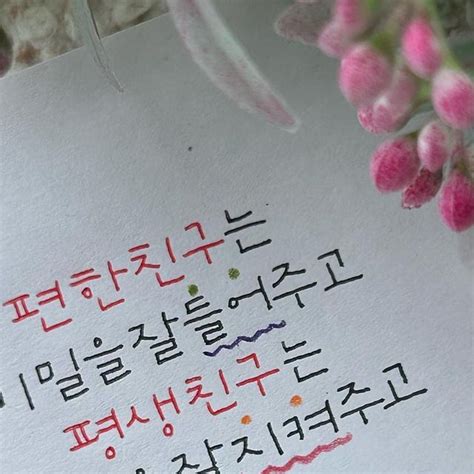 편한친구는
비밀을 잘 들어주고
평생친구는
잘 지켜주고